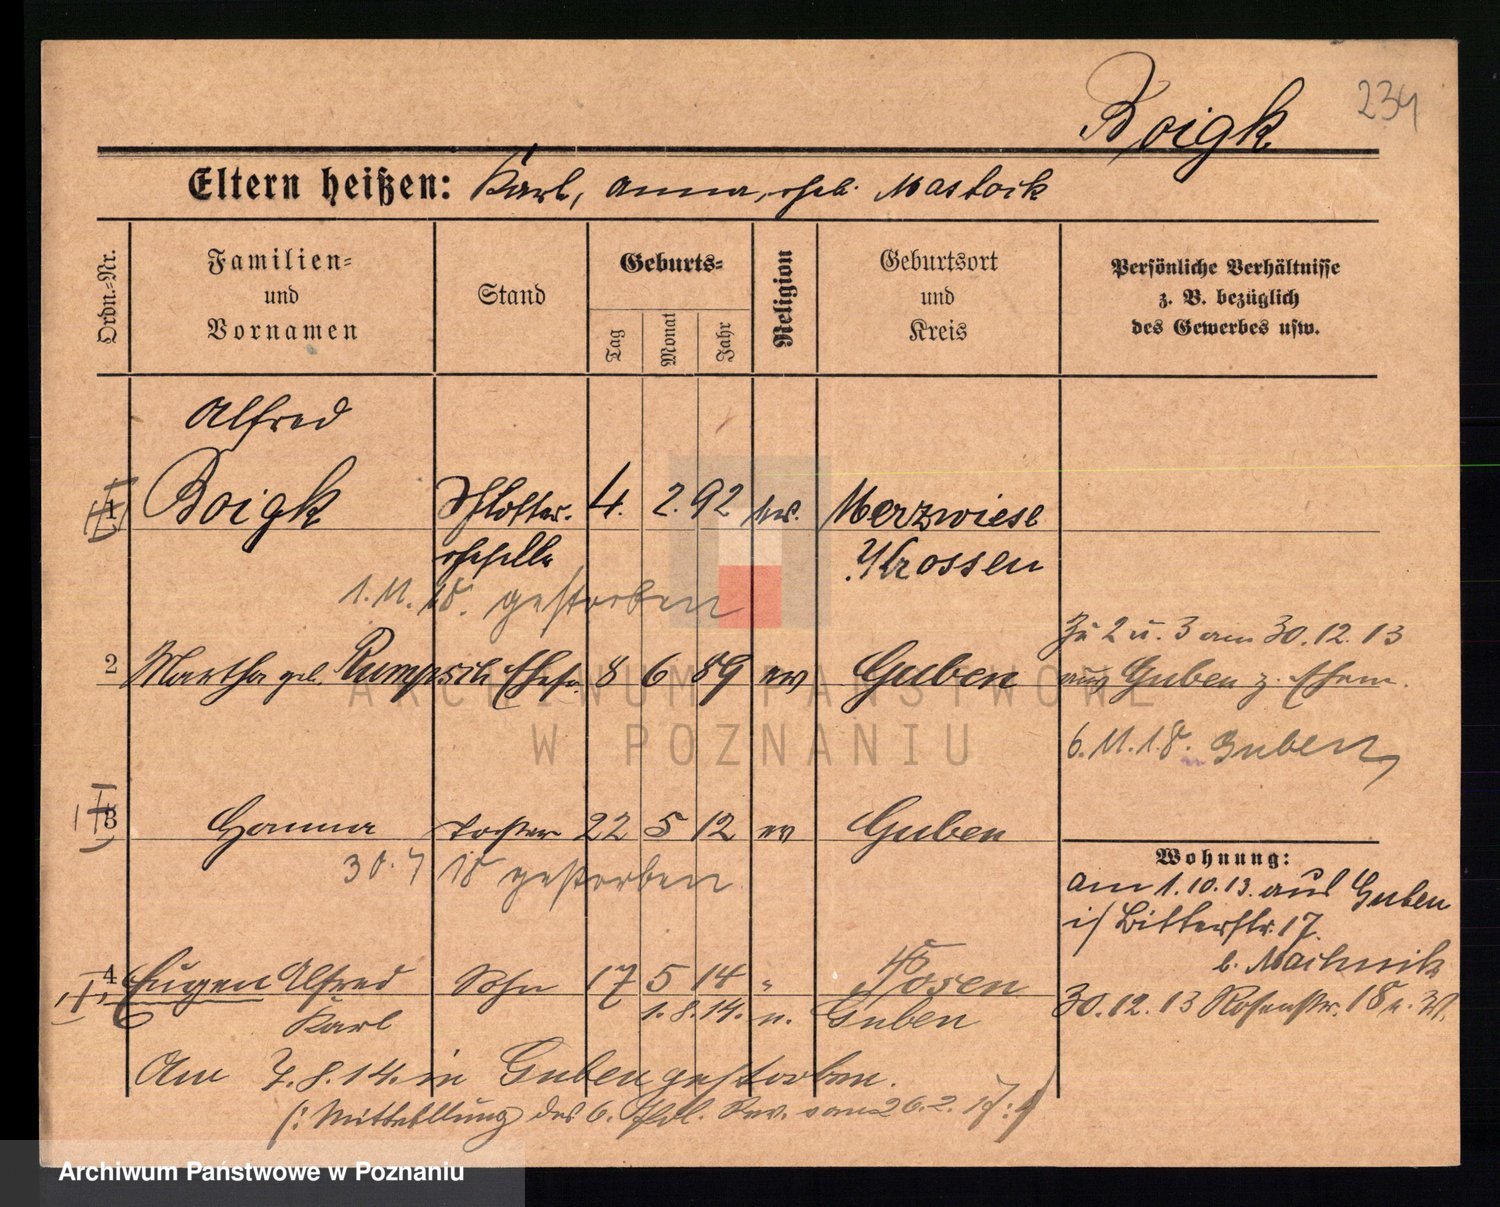 234
Boigk
Eltern heißen: Karl, Anna, geb. Mastock
Ordn.-Nr.
Familien-
und
Vornamen
Stand
Geburts-
Tag
Monat
Jahr
Religion
Geburtsort
und
Kreis
Persönliche Verhältnisse
z. B. bezüglich
des Gewerbes usw.
Alfred
1 Boigk Schlosser- 4. 2. 92 ev. Merzwiese
geselle Krossen
1.11.18. gestorben
2 Martha geb. Ehefr. 8 6 89 ev Guben
Zu 2 u. 3 am 30.12.13
aus Guben z. Ehem.
6.11.18. Guben
3 Hanna Tochter 22 5 12 ev Guben
30.7 18 gestorben
Wohnung:
Am 1.10.13. aus Guben
Bitterstr. 17.
b.
30.12.13 Rosenstr. 18
4 Eugen Alfred Sohn 17 5 14 " Posen
Karl 1.8.14. n. Guben
Am 7.8.14. in Guben gestorben.
(: Mitteilung des 6. Pol. Rev. vom 26.2.17 :)
ARCHIWUM PAŃSTWOWE
W POZNANIU
Archiwum Państwowe w Poznaniu